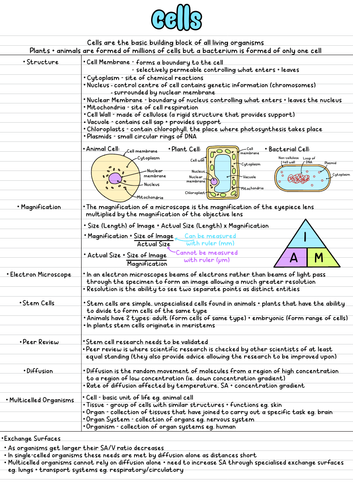 cells
Cells are the basic building block of all living organisms
Plants + animals are formed of millions of cells but a bacterium is formed of only one cell
• Structure
• Cell Membrane - forms a boundary to the cell
- selectively permeable controlling what enters + leaves
• Cytoplasm - site of chemical reactions
• Nucleus - control centre of cell contains genetic information (chromosomes)
- surrounded by nuclear membrane
• Nuclear Membrane - boundary of nucleus controlling what enters + leaves the nucleus
• Mitochondria - site of cell respiration
• Cell Wall - made of cellulose (a rigid structure that provides support)
• Vacuole - contains cell sap + provides support
• Chloroplasts - contain chlorophyll, the place where photosynthesis takes place
• Plasmids - small circular rings of DNA
• Animal Cell:
Cell membrane
Cytoplasm
Nuclear membrane
Nucleus
Mitochondria
• Plant Cell:
Cell membrane
Cell wall
Cytoplasm
Nuclear membrane
Nucleus
Vacuole
Chloroplast
Mitochondria
• Bacterial Cell:
Non-cellulose cell wall
Loop of DNA
Plasmid
Cytoplasm
• Magnification
• The magnification of a microscope is the magnification of the eyepiece lens
multiplied by the magnification of the objective lens
• Size (Length) of Image = Actual Size (Length) x Magnification
• Magnification = Size of Image
Actual Size
Can be measured
with ruler (mm)
• Actual Size = Size of Image
Magnification
Cannot be measured
with ruler (µm)
I
A M
• Electron Microscope
• In an electron microscopes beams of electrons rather than beams of light pass
through the specimen to form an image allowing a much greater resolution
• Resolution is the ability to see two separate points as distinct entities
• Stem Cells
• Stem cells are simple, unspecialised cells found in animals + plants that have the ability
to divide to form cells of the same type
• Animals have 2 types: adult (form cells of same type) + embryonic (form range of cells)
• In plants stem cells originate in meristems
• Peer Review
• Stem cell research needs to be validated
• Peer review is where scientific research is checked by other scientists of at least
equal standing (they also provide advice allowing the research to be improved upon)
• Diffusion
• Diffusion is the random movement of molecules from a region of high concentration
to a region of low concentration (ie. down concentration gradient)
• Rate of diffusion affected by temperature, SA + concentration gradient
• Multicelled Organisms
• Cell - basic unit of life eg. animal cell
• Tissue - group of cells with similar structures + functions eg. skin
• Organ - collection of tissues that have joined to carry out a specific task eg. brain
• Organ System - collection of organs eg. nervous system
• Organism - collection of organ systems eg. human
• Exchange Surfaces
• As organisms get larger their SA/V ratio decreases
• In single-celled organisms these needs are met by diffusion alone as distances short
• Multicelled organisms cannot rely on diffusion alone + need to increase SA through specialised exchange surfaces
eg. lungs + transport systems eg. respiratory/circulatory